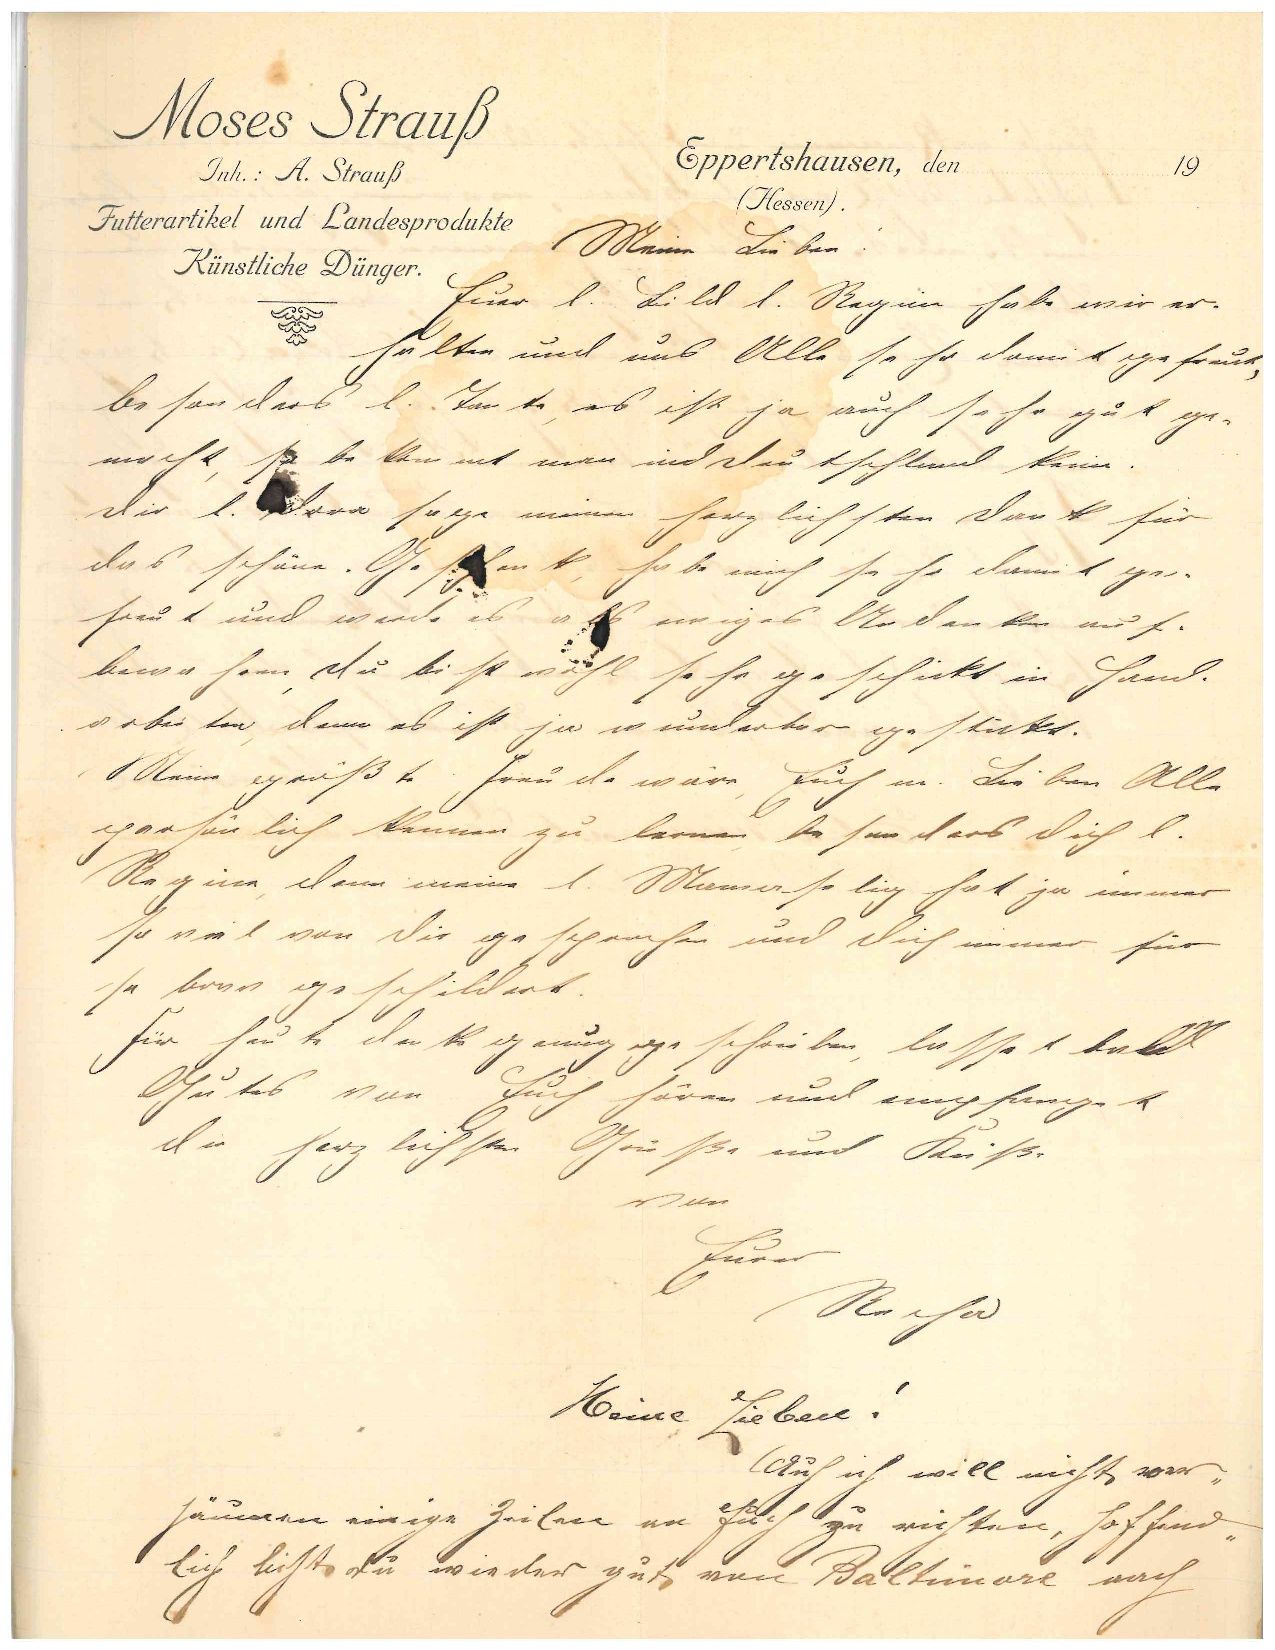 Moses Strauß
Inh.: A. Strauß
Futterartikel und Landesprodukte
Künstliche Dünger.
Eppertshausen, den 19
(Hessen).
Meine Lieben!
Euer l. Bild l. Regine habe wir er-
halten und uns Alle sehr damit gefreut,
besonders l. Tante, es ist ja auch sehr gut ge-
macht, so bekommt man in Deutschland kein.
Dir l. Dora sage meinen herzlichsten Dank für
das schöne Geschenk, habe mich sehr damit ge-
freut und werde es als ewiges Andenken auf-
bewahren, du bist wohl sehr geschickt in Hand-
arbeiten, denn es ist ja wunderbar gestickt.
Meine größte Freude wäre, Euch m. Lieben Alle
persönlich kennen zu lernen, besonders dich l.
Regine, denn meine l. Mama selig hat ja immer
so viel von dir gesprochen und dich immer für
so brav geschildert.
Für heute denke genug geschrieben, lasset bald
Gutes von Euch hören und empfanget
die herzlichsten Grüße und Küße
von
Eurer
Recha
Meine Lieben!
Auch ich will nicht ver-
säumen einige Zeilen an Euch zu richten, hoffend-
lich bist du wieder gut von Baltimore nach